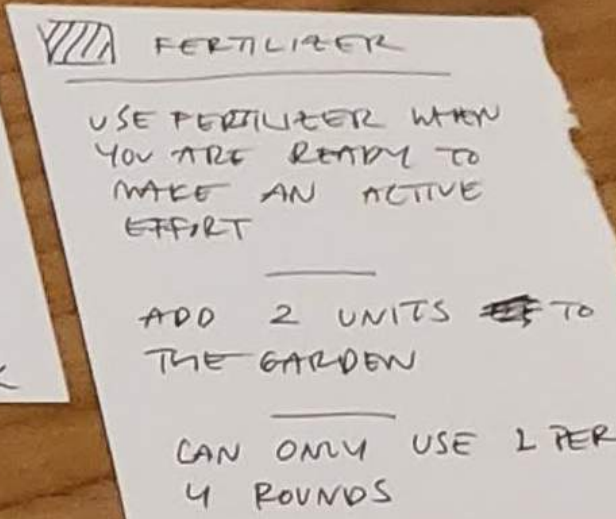 FERTILIZER
USE FERTILIZER WHEN
YOU ARE READY TO
MAKE AN ACTIVE
EFFORT
ADD 2 UNITS TO
THE GARDEN
CAN ONLY USE 1 PER
4 ROUNDS